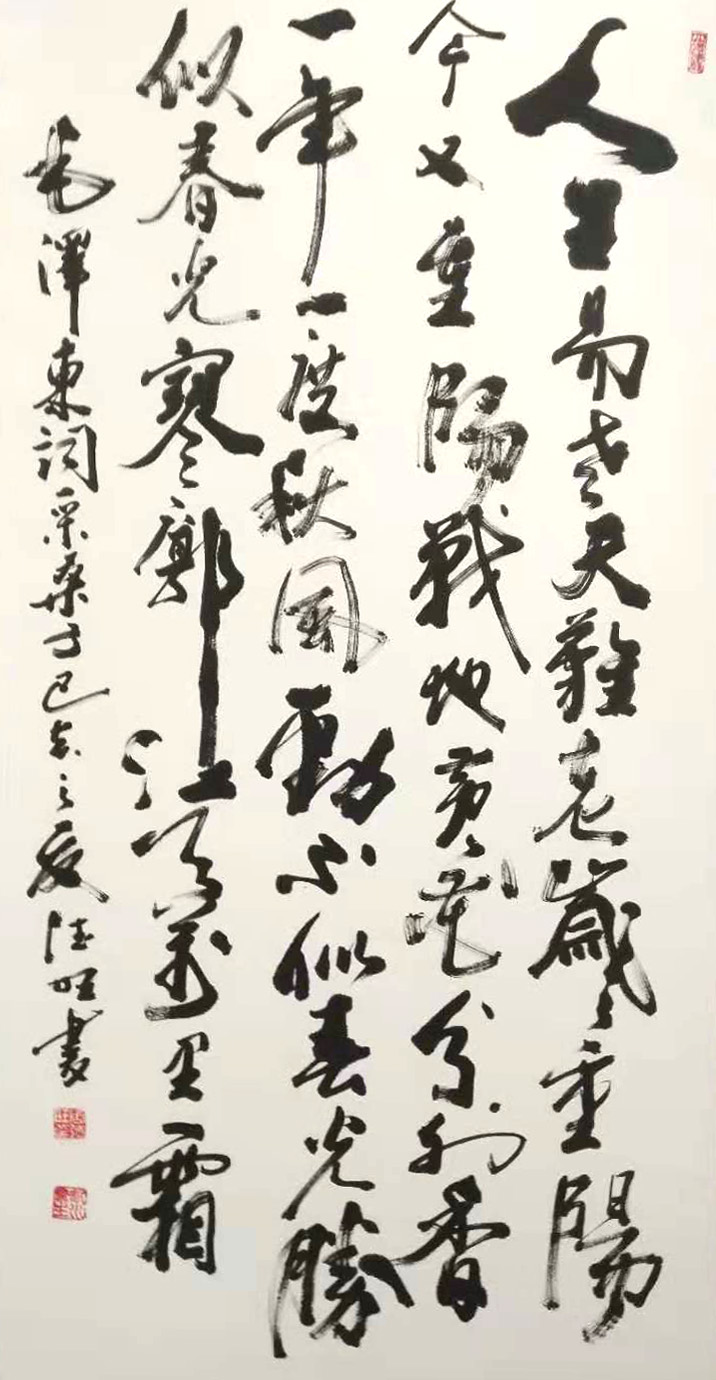 人生易老天難老歲〻重陽
今又重陽戰地黃花分外香
一年一度秋風勁不似春光勝
似春光寥廓江天萬里霜
毛澤東詞采桑子己亥之夏旺書